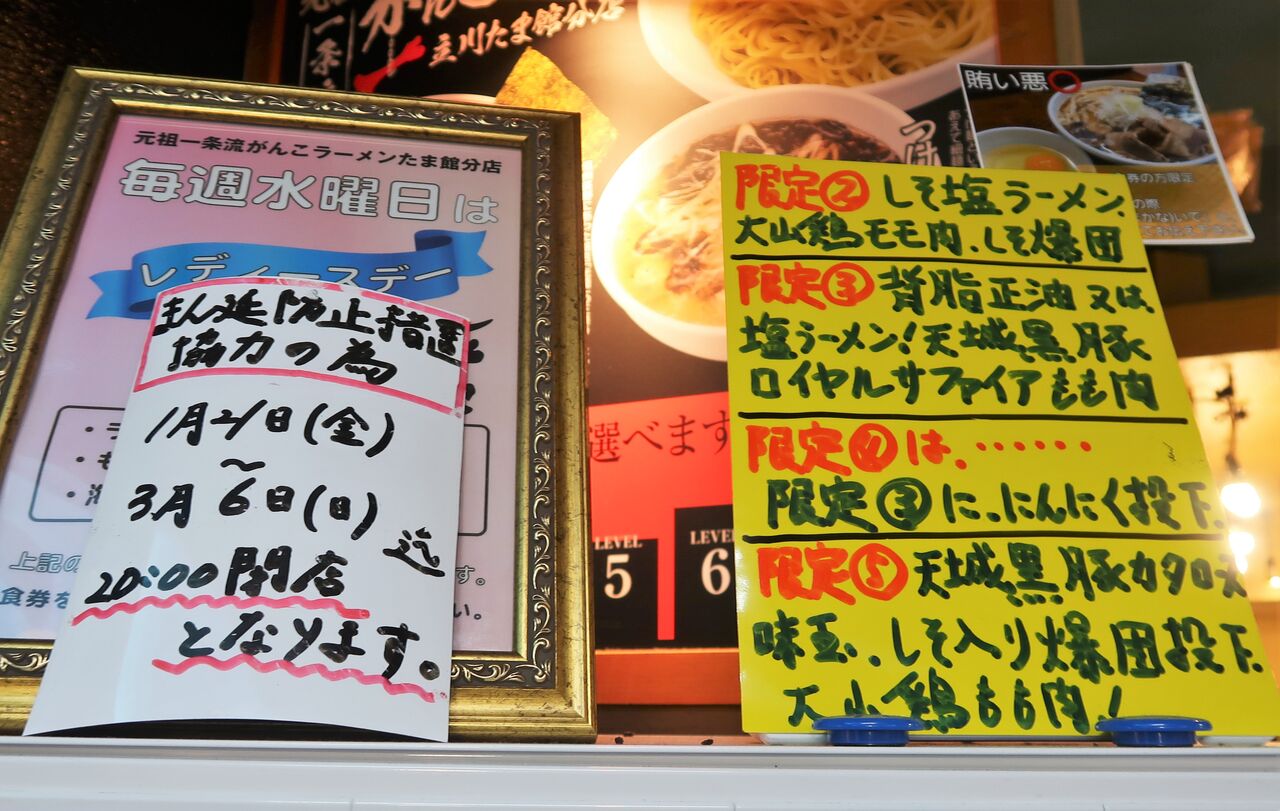 立川たま館分店
元祖一条流がんこラーメンたま館分店
毎週水曜日は
レディースデー
まん延防止措置
協力の為
1月21日(金)
〜
3月6日(日)迄
20:00閉店
となります。
上記の
食券を
選べます
LEVEL
5
LEVEL
6
賄い悪
券の方限定
限定② しそ塩ラーメン、
大山鶏モモ肉、しそ爆団
限定③ 背脂正油又は
塩ラーメン!天城黒豚
ロイヤルサファイアもも肉
限定④は、……
限定③に、にんにく投下、
限定⑤ 天城黒豚カタロス
味玉、、しそ入り爆団投下、
大山鶏もも肉!